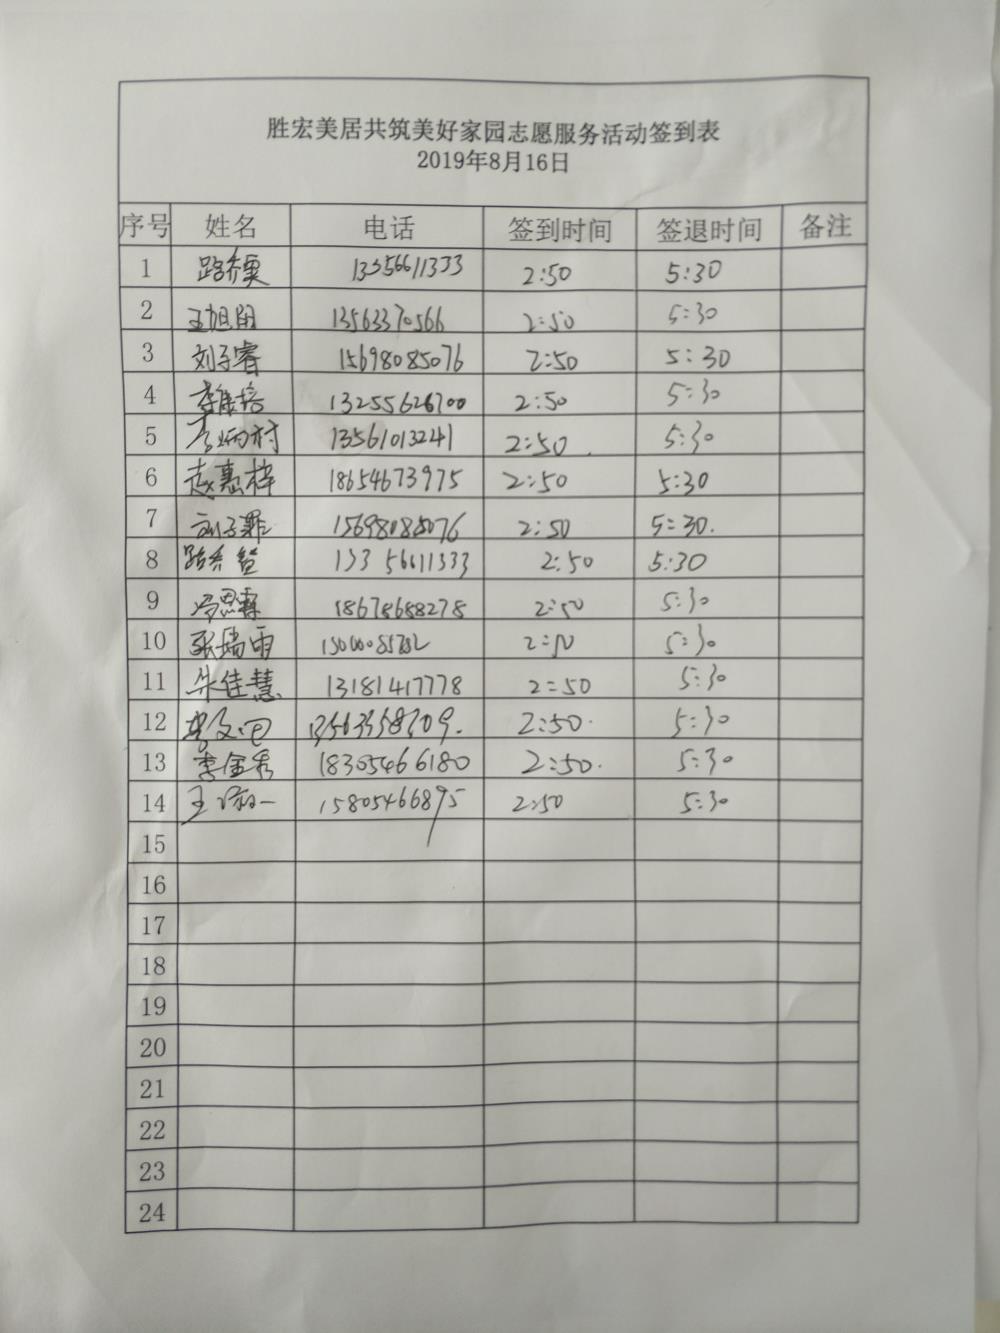 胜宏美居共筑美好家园志愿服务活动签到表
2019年8月16日
序号 姓名 电话 签到时间 签退时间 备注
1 13356611333 2:50 5:30
2 王旭阳 13563370566 2:50 5:30
3 刘子睿 15698085076 2:50 5:30
4 13255626700 2:50 5:30
5 13561013241 2:50 5:30
6 赵惠梓 18654673975 2:50 5:30
7 刘子霏 15698085076 2:50 5:30
8 13356611333 2:50 5:30
9 冯恩霖 18678688278 2:50 5:30
10 张瑞雨 2:50 5:30
11 朱佳慧 13181417778 2:50 5:30
12 2:50 5:30
13 李金秀 18305466180 2:50 5:30
14 15805466895 2:50 5:30
15
16
17
18
19
20
21
22
23
24